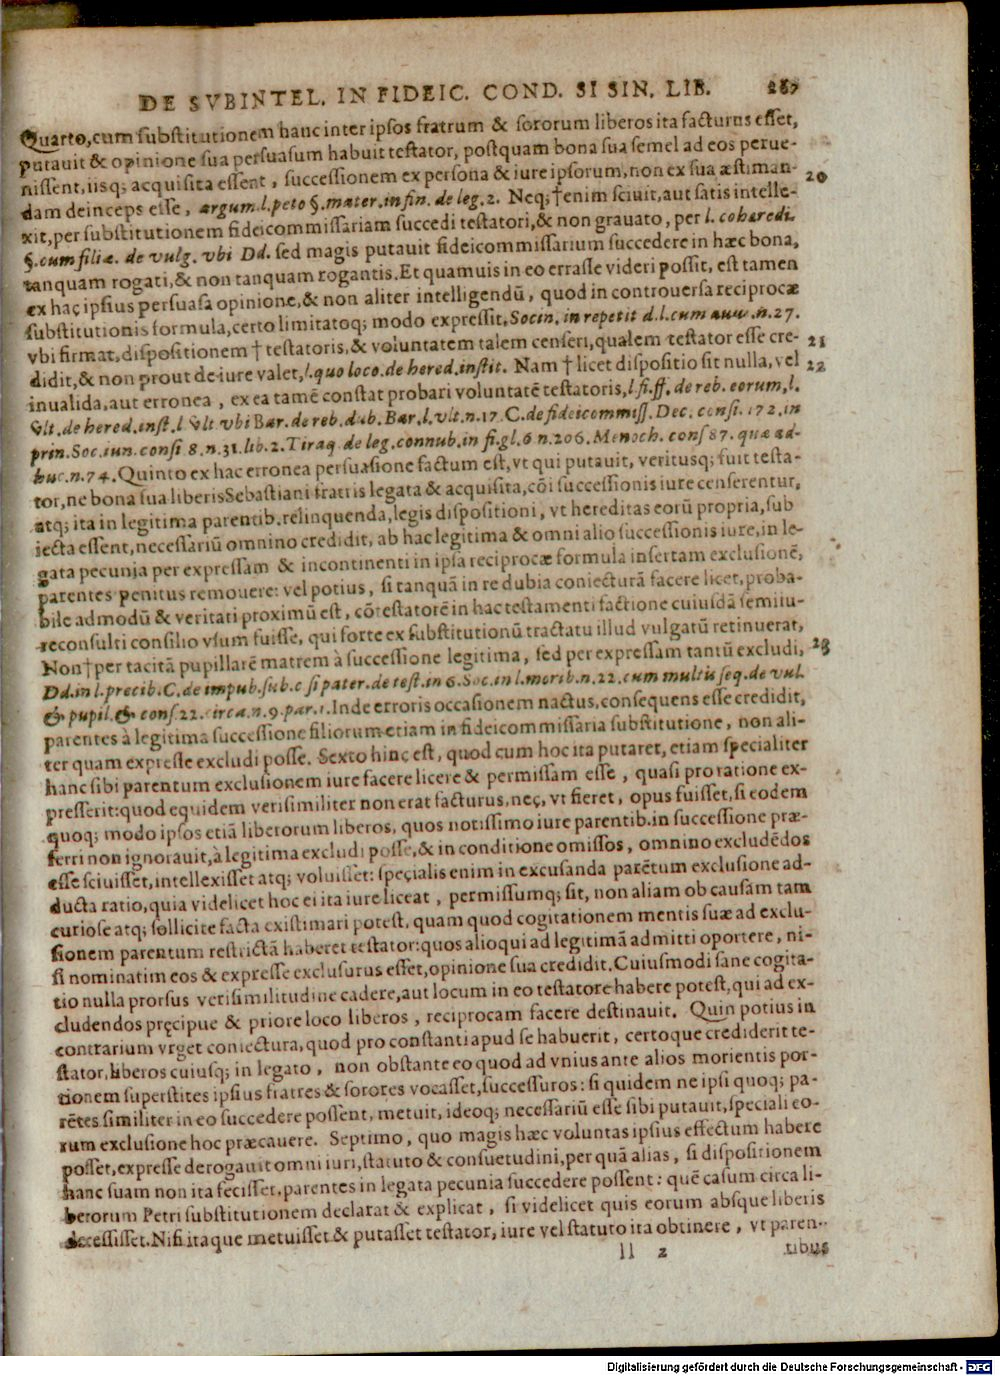 DE SVBINTEL. IN FIDEIC. COND. SI SIN. LIB. 267
Quarto, cum substitutionem hanc inter ipsos fratrum & sororum liberos ita facturus esset,
putauit & opinione sua persuasum habuit testator, postquam bona sua semel ad eos perue-
nissent, iisq; acquisita essent, successionem ex persona & iure ipsorum, non ex sua æstiman- 20
dam deinceps esse, argum. l. peto §. mater. in fin. de leg. 2. Neq; † enim sciuit, aut satis intelle-
xit, per substitutionem fideicommissariam succedi testatori, & non grauato, per l. coheredi.
§. cum filiæ. de vulg. vbi Dd. sed magis putauit fideicommissarium succedere in hæc bona,
tanquam rogati, & non tanquam rogantis. Et quamuis in eo errasse videri possit, est tamen
ex hac ipsius persuasa opinione, & non aliter intelligendū, quod in controuersa reciprocæ
substitutionis formula, certo limitatoq; modo expressit. Socin. in repetit d. l. cum auw. n. 27.
vbi firmat, dispositionem † testatoris, & voluntatem talem censeri, qualem testator esse cre- 21
didit, & non prout de iure valet, l. quo loco. de hered. instit. Nam † licet dispositio sit nulla, vel 22
inualida, aut erronea, ex ea tamē constat probari voluntatē testatoris, l. fi. ff. de reb. eorum, l.
vlt. de hered. inst. l. vlt. vbi Bar. de reb. dub. Bar. l. vlt. n. 17. C. de fideicommiss. Dec. consi. 172. in
prin. Soc. iun. consi 8. n. 31. lib. 2. Tiraq. de leg. connub. in fi. gl. 6 n. 206. Menoch. cons 87. quæ ad-
huc. n. 74. Quinto ex hac erronea persuasione factum est, vt qui putauit, veritusq; fuit testa-
tor, ne bona sua liberis Sebastiani fratris legata & acquisita, cōi successionis iure censerentur,
atq; ita in legitima parentib. relinquenda, legis dispositioni, vt hereditas eorū propria, sub
iecta essent, necessariū omnino credidit, ab hac legitima & omni alio successionis iure, in le-
gata pecunia per expressam & incontinenti in ipsa reciprocæ formula insertam exclusionē,
parentes penitus remouere: vel potius, si tanquā in re dubia coniecturā facere licet, proba-
bile admodū & veritati proximū est, cō testatorē in hac testamenti factione cuiusdā semiiu-
reconsulti consilio vsum fuisse, qui forte ex substitutionū tractatu illud vulgatū retinuerat,
Non † per tacitā pupillarē matrem à successione legitima, sed per expressam tantū excludi, 23
Dd. in l. precib. C. de impub. sub. c si pater. de test. in 6. Soc. in l. morib. n. 22. cum multis seq. de vul.
& pupil. & cons 22. circa. n. 9. par. 1. Inde erroris occasionem nactus, consequens esse credidit,
parentes à legitima successione filiorum etiam in fideicommissaria substitutione, non ali-
ter quam expresse excludi posse. Sexto hinc est, quod cum hoc ita putaret, etiam specialiter
hanc sibi parentum exclusionem iure facere licere & permissam esse, quasi pro ratione ex-
presserit: quod equidem verisimiliter non erat facturus, nec, vt fieret, opus fuisset, si eodem
quoq; modo ipsos etiā liberorum liberos, quos notissimo iure parentib. in successione præ-
ferri non ignorauit, à legitima excludi posse, & in conditione omissos, omnino excludēdos
esse sciuisset, intellexisset atq; voluisset: specialis enim in excusanda parētum exclusione ad-
ducta ratio, quia videlicet hoc ei ita iure liceat, permissumq; sit, non aliam ob causam tam
curiose atq; sollicite facta existimari potest, quam quod cogitationem mentis suæ ad exclu-
sionem parentum restrictā haberet testator: quos alioqui ad legitimā admitti oportere, ni-
si nominatim eos & expresse exclusurus esset, opinione sua credidit. Cuiusmodi sane cogita-
tio nulla prorsus verisimilitudine cadere, aut locum in eo testatore habere potest, qui ad ex-
cludendos pręcipue & priore loco liberos, reciprocam facere destinauit. Quin potius in
contrarium vrget coniectura, quod pro constanti apud se habuerit, certoque crediderit te-
stator, liberos cuiusq; in legato, non obstante eo quod ad vnius ante alios morientis por-
tionem superstites ipsius fratres & sorores vocasset, successuros: si quidem ne ipsi quoq; pa-
rētes similiter in eo succedere possent, metuit, ideoq; necessariū esse sibi putauit, speciali eo-
rum exclusione hoc præcauere. Septimo, quo magis hæc voluntas ipsius effectum habere
posset, expresse derogauit omni iuri, statuto & consuetudini, per quā alias, si dispositionem
hanc suam non ita fecisset, parentes in legata pecunia succedere possent: quē casum circa li-
berorum Petri substitutionem declarat & explicat, si videlicet quis eorum absque liberis
decessisset. Nisi itaque metuisset & putasset testator, iure vel statuto ita obtinere, vt paren-
ll 2 tibus
Digitalisierung gefördert durch die Deutsche Forschungsgemeinschaft - DFG